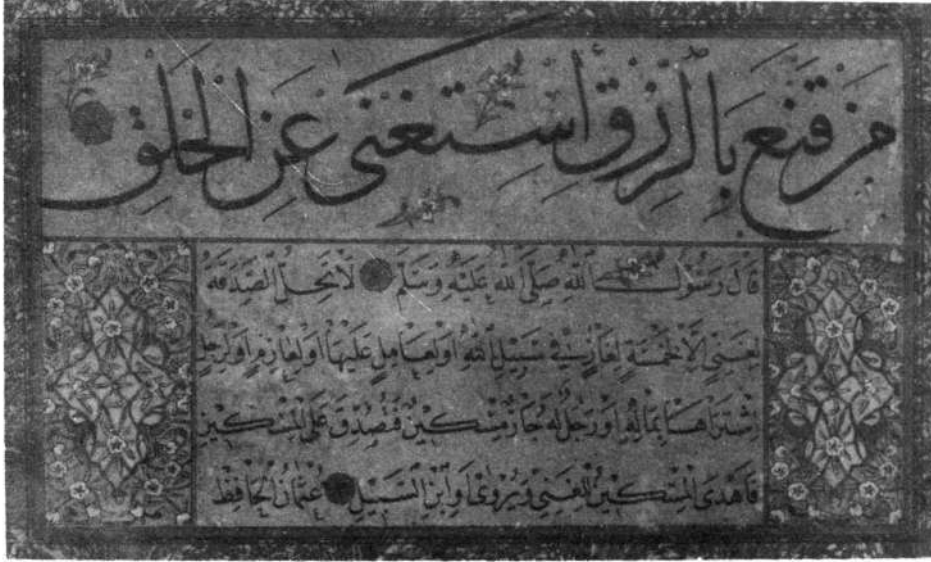 مَن قَنَعَ بِالرِّزْقِ اسْتَغْنَى عَنِ الْخَلْقِ
قَالَ رَسُولُ اللهِ صَلَّى اللهُ عَلَيْهِ وَسَلَّمَ لَا تَحِلُّ الصَّدَقَةُ
لِغَنِيٍّ إِلَّا لِخَمْسَةٍ لِغَازٍ فِي سَبِيلِ اللهِ أَوْ لِعَامِلٍ عَلَيْهَا أَوْ لِغَارِمٍ أَوْ لِرَجُلٍ
اشْتَرَاهَا بِمَالِهِ أَوْ رَجُلٍ لَهُ جَارٌ مِسْكِينٌ فَتُصُدِّقَ عَلَى الْمِسْكِينِ
فَأَهْدَى الْمِسْكِينُ لِلْغَنِيِّ وَيُرْوَى أَوِ ابْنِ السَّبِيلِ عُثْمَانُ الْحَافِظ